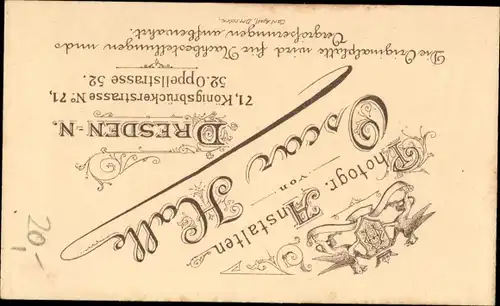 Photogr. Anstalten
von
Oscar Halle
DRESDEN=N.
71, Königsbrückerstrasse No 71,
52. Oppellstrasse 52.
Die Originalplatte wird für Nachbestellungen und
Vergrösserungen aufbewahrt.
20,-